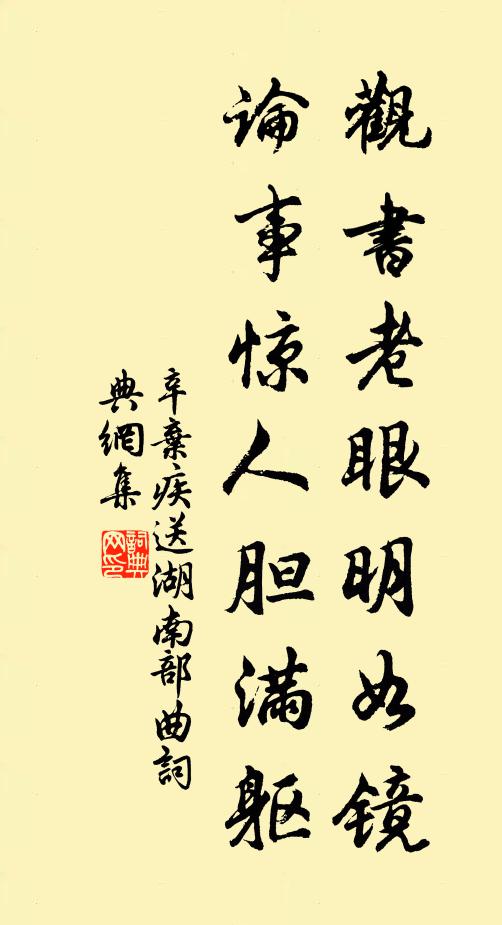 觀書老眼明如镜
论事惊人胆满躯
辛棄疾送湖南部曲詞
典網集
詞典
网印